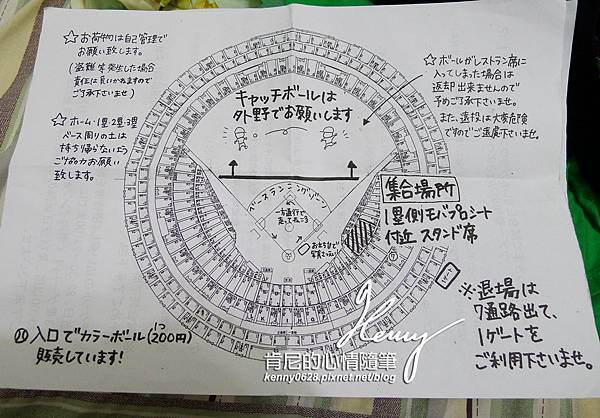 ☆お荷物は自己管理で
お願い致します。
(盗難等発生した場合
責任は負いかねますので
ご了承下さいませ)
☆ホーム・1塁・2塁・3塁
ベース周りの土は
持ち帰らないよう
ご協力お願い
致します。
キャッチボールは
外野でお願いします
☆ボールがレストラン席に
入ってしまった場合は
返却出来ませんので
予めご了承下さいませ。
また、遠投は大変危険
ですのでご遠慮下さいませ。
ベースランニングゾーン
一方通行で
集合場所
1塁側モバプロシート
付近 スタンド席
※退場は
7通路出て、
1ゲートを
ご利用下さいませ。
入口でカラーボール(1つ200円)
販売しています!
Kenny
肯尼的心情隨筆
kenny0628.pixnet.net/blog